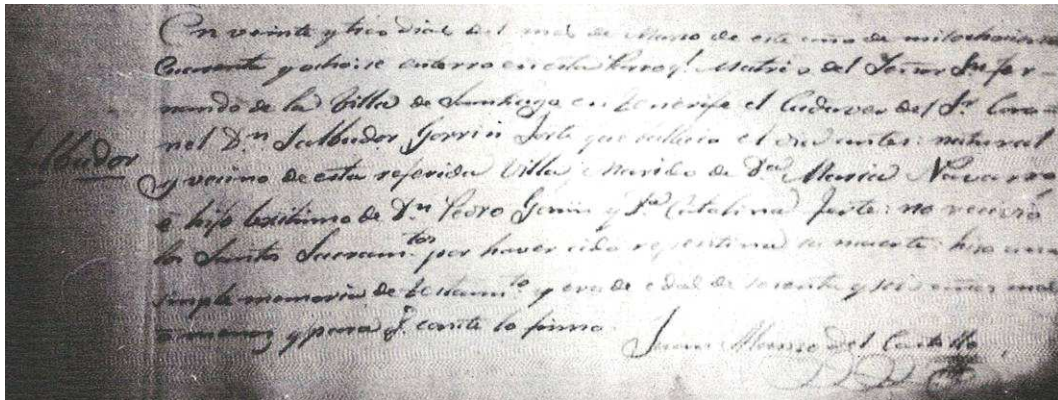 En veinte y tres dias del mes de Marzo de este año de mil ochocientos
Cuarenta y ocho: se enterro en esta Parroql. Matris del Señor Sn. Fer-
nando de la Villa de Santiago en Tenerife el Cadaver del Sr. Coro-
nel Dn. Salbador Gorrin Jorte que fallecio el dia antes: natural
Salbador
y vecino de esta referida Villa: Marido de Da. Maria Navarro
é hijo lexitimo de Dn. Pedro Gorrin y Da. Catalina Jorte: no recivió
los Santos Sacramtos. por haver cido repentina su muerte: hiso una
simple memoria de testamto. y era de edad de sesenta y seis años mas
o menos y para q. conste lo firmo.
Juan Alonso del Castillo